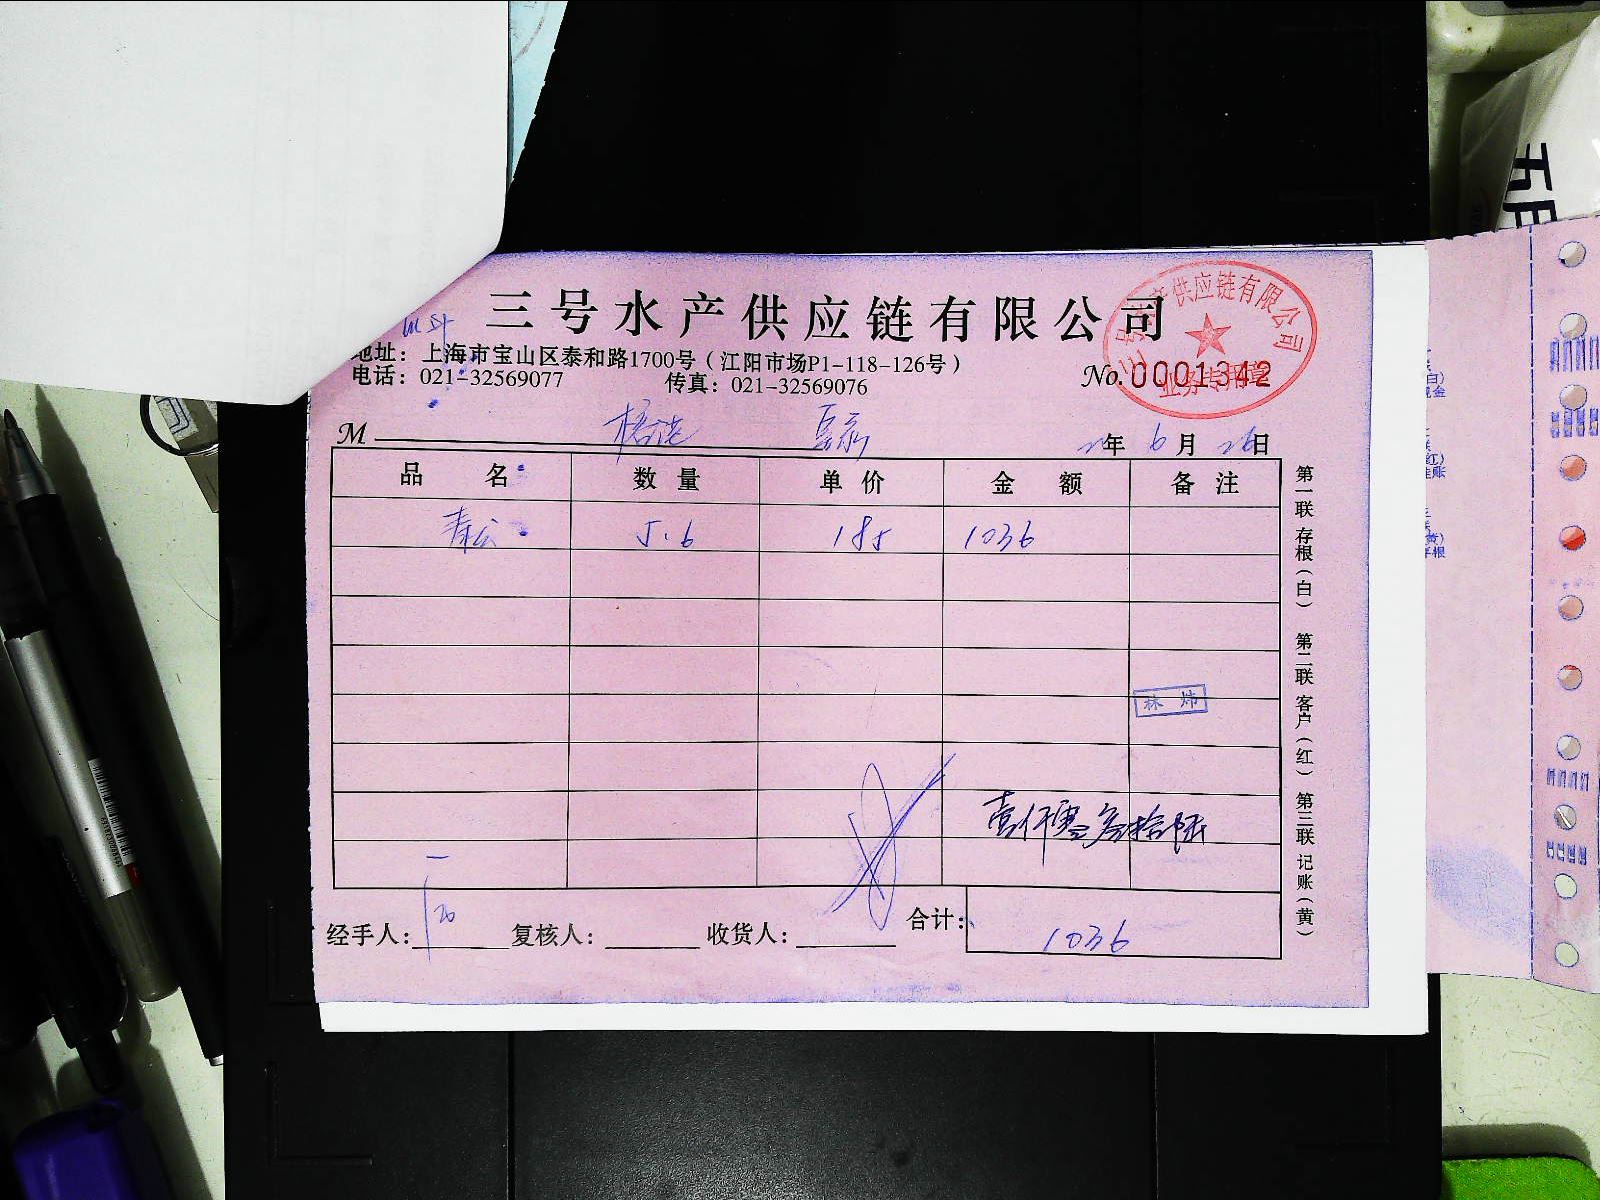 三号水产供应链有限公司
地址：上海市宝山区泰和路1700号（江阳市场P1-118-126号）
电话：021-32569077 传真：021-32569076
No.0001342
产供应链有限公司
业务专用章
M
年 6 月 26日
品 名 数 量 单 价 金 额 备 注
5.6 185 1036
林 炜
壹仟零叁拾陆
经手人： 复核人： 收货人： 合计：
1036
第一联 存根（白） 第二联 客户（红） 第三联 记账（黄）
五月